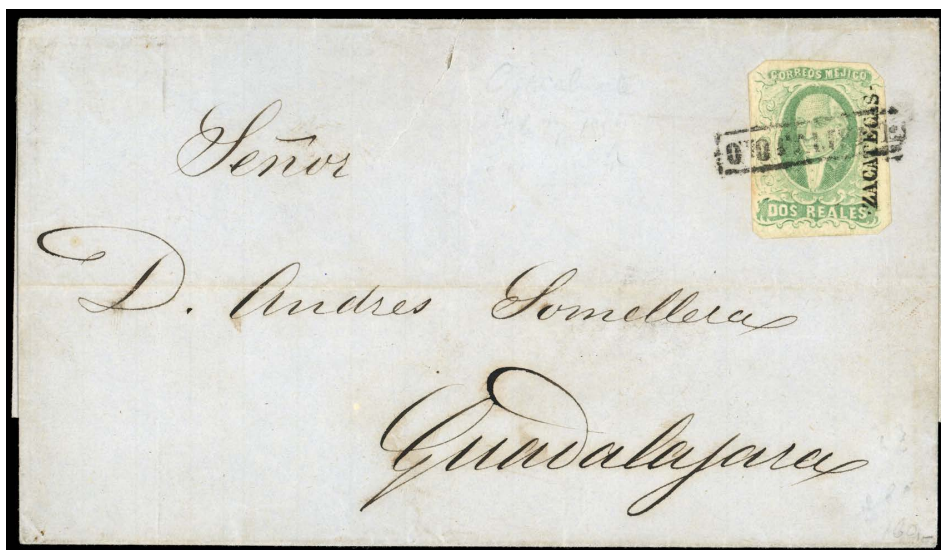 CORREOS MEJICO
ZACATECAS
DOS REALES
Señor
D. Andres Somellera
Guadalajara